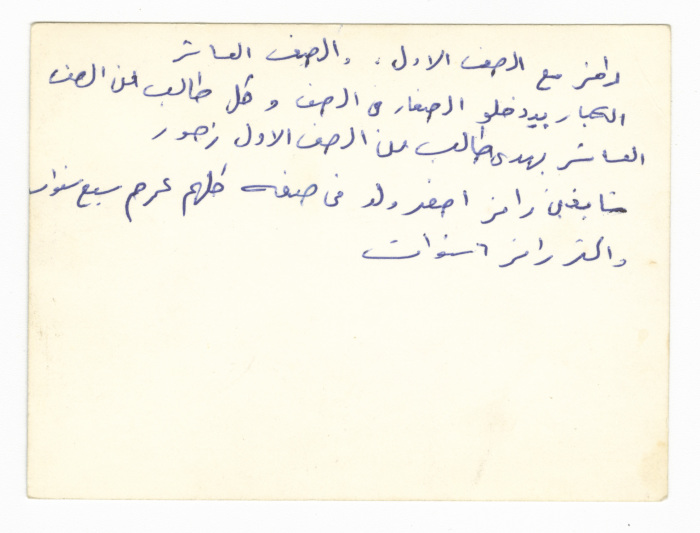 رامز مع الصف الاول، والصف العاشر
الكبار بيدخلو الصغار في الصف وكل طالب من الصف
العاشر بهدي طالب من الصف الاول زهور
رامز اصغر ولد في صفه كلهم عمرهم سبع سنوات
رامز ٦ سنوات